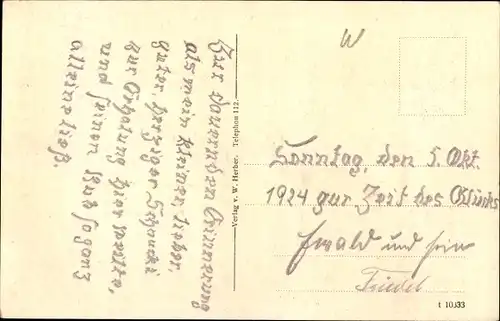 Zur dauernden Erinnerung
als mein kleiner, lieber,
guter, herziger Schnucki
zur Erholung hier weilte,
und seinen Bub so ganz
alleine ließ.
Verlag v. W. Herber. Telephon 112.
W
Sonntag, den 5. Okt.
1924 zur Zeit des Glücks
Ewald und sein
Friedel
t 10533